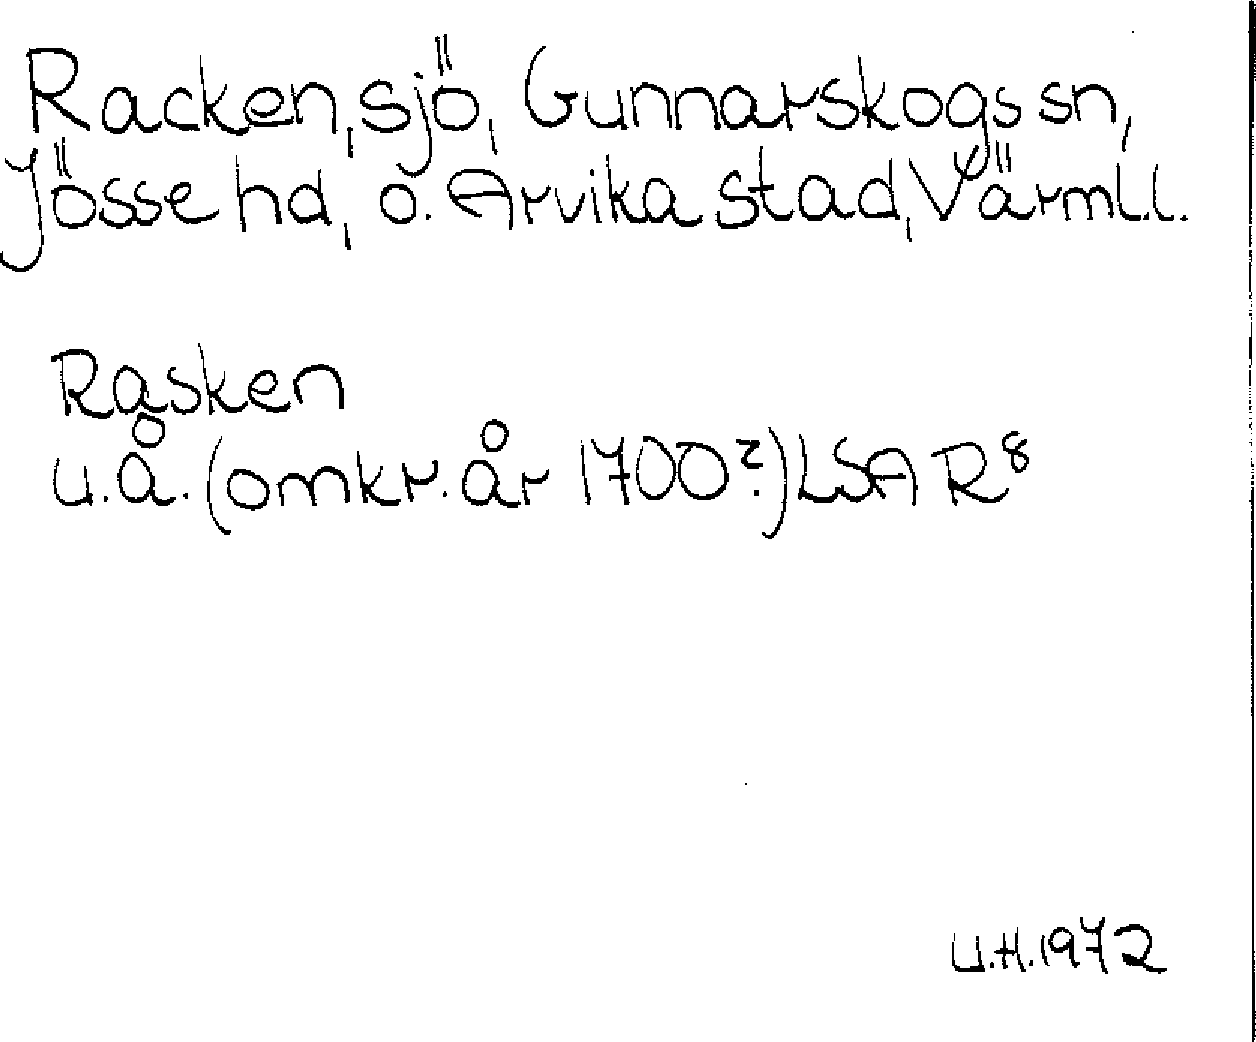 Racken, sjö, Gunnarskogs sn,
Jösse hd, o. Arvika stad, Värml.l.
Rasken
u.å. (omkr. år 1700?) LSA R⁸
U.H. 1972